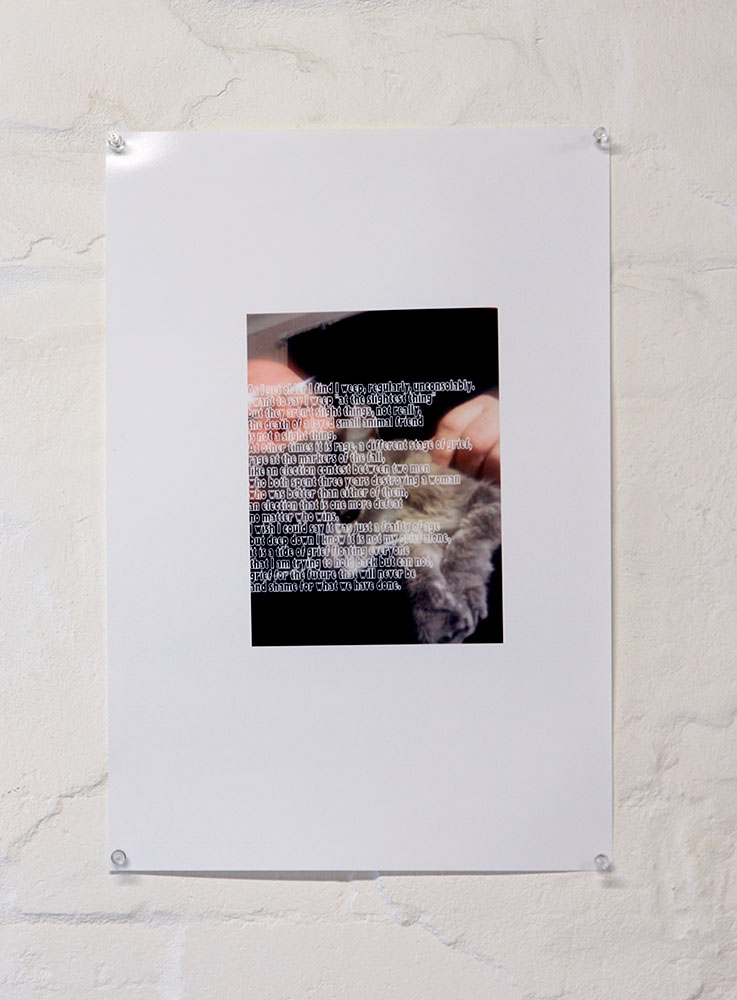 As I get older I find I weep, regularly, unconsolably.
I want to say I weep "at the slightest thing"
but they aren't slight things, not really,
the death of a loved small animal friend
is not a slight thing.
At other times it is rage, a different stage of grief,
rage at the markers of the fall,
like an election contest between two men
who both spent three years destroying a woman
who was better than either of them,
an election that is one more defeat
no matter who wins.
I wish I could say it was just a frailty of age
but deep down I know it is not my grief alone,
it is a tide of grief floating everyone
that I am trying to hold back but can not,
grief for the future that will never be
and shame for what we have done.